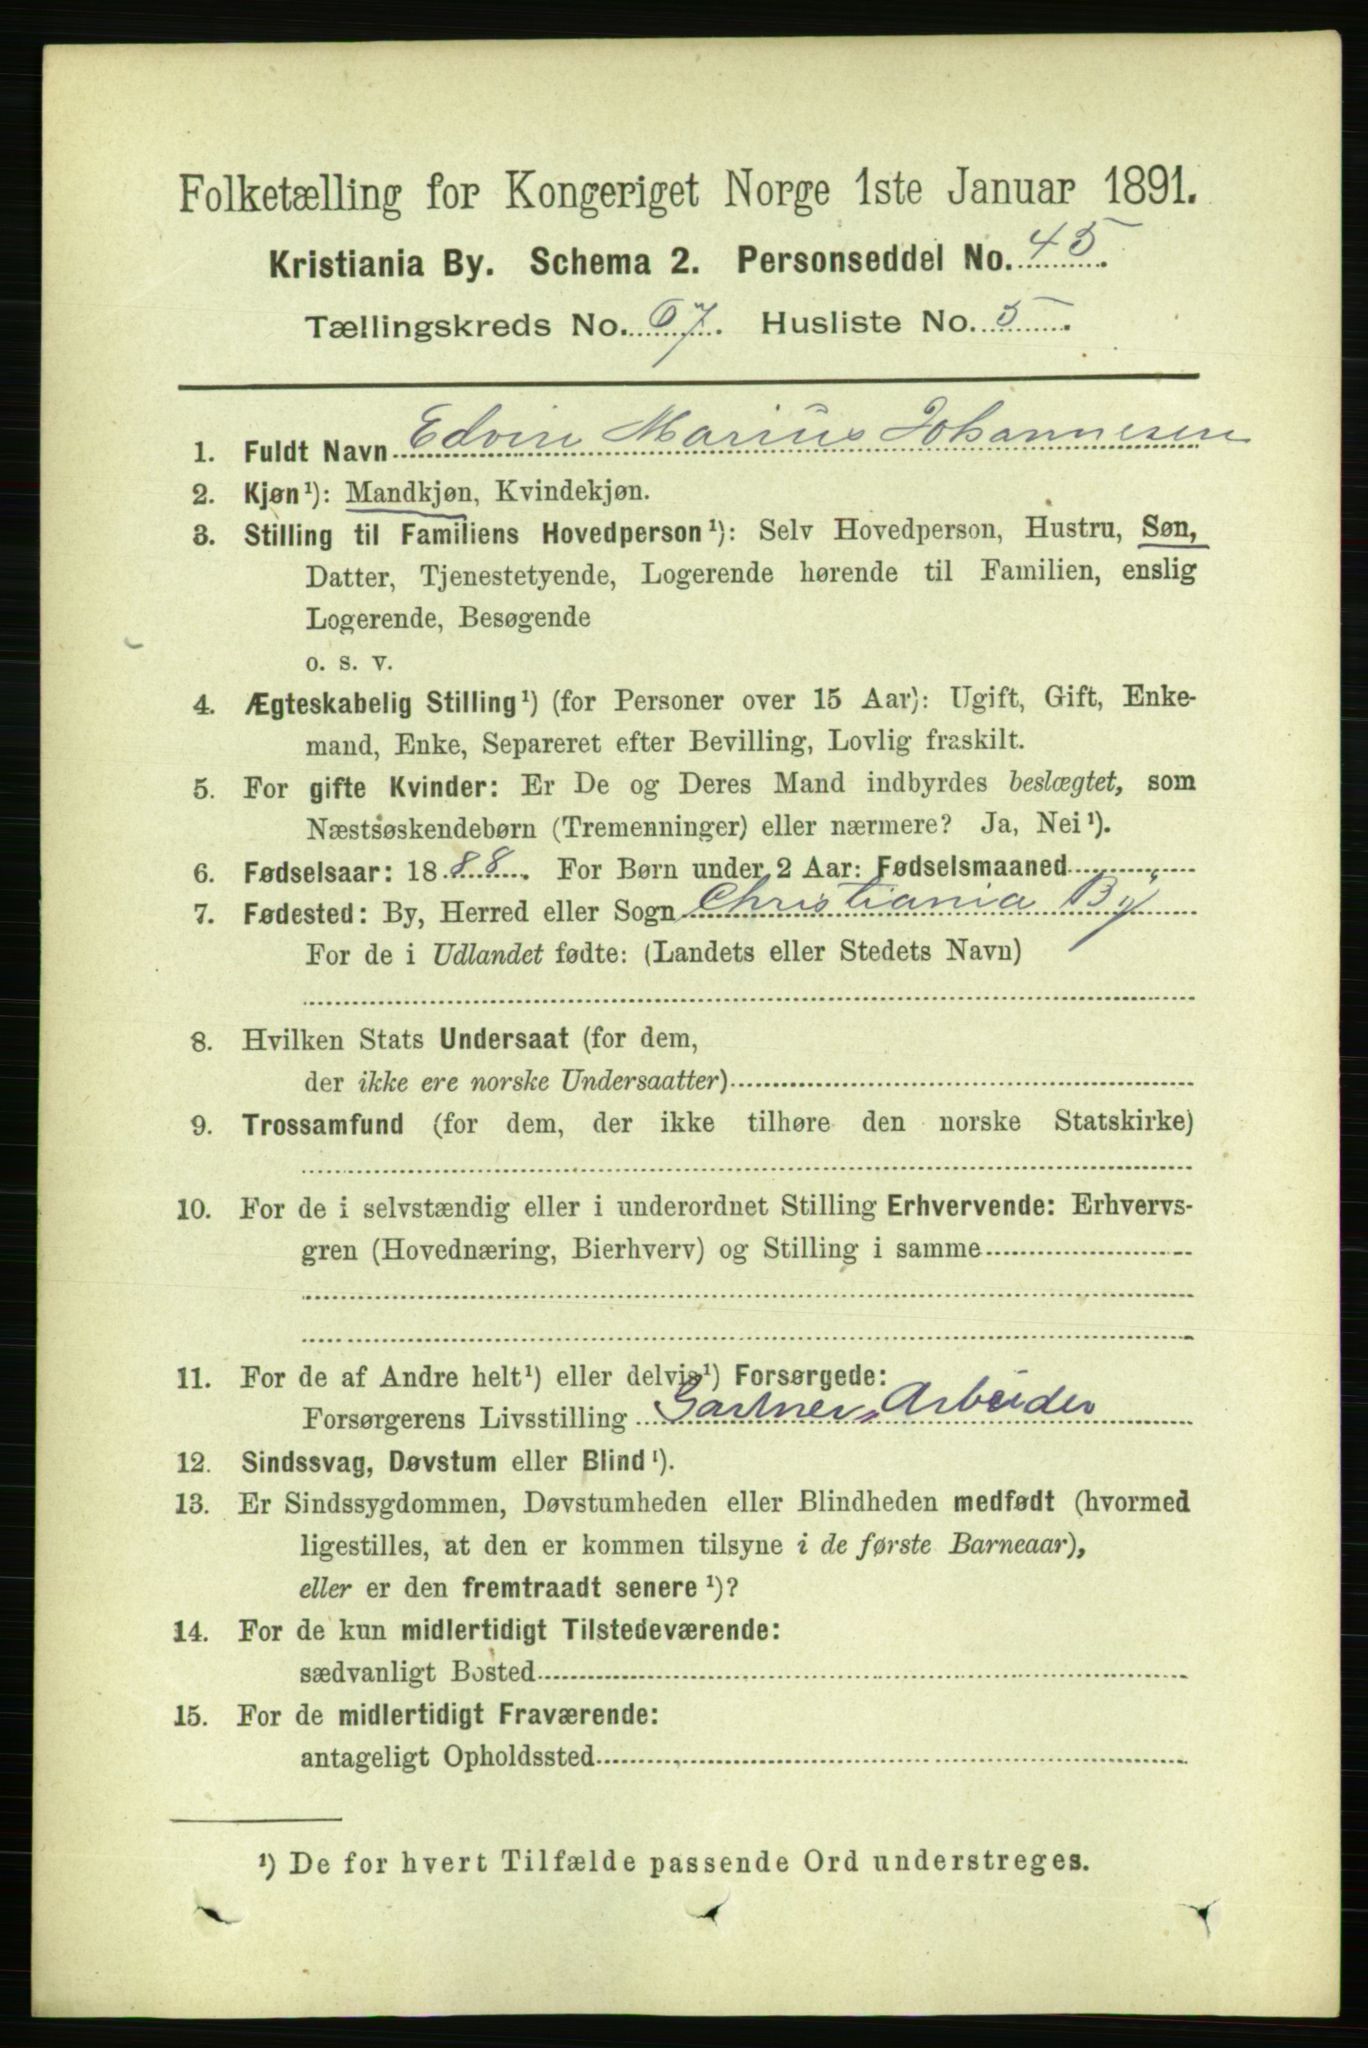 Folketælling for Kongeriget Norge 1ste Januar 1891.
Kristiania By. Schema 2. Personseddel No. 45.
Tællingskreds No. 67. Husliste No. 5.
1. Fuldt Navn Edvin Marius Johannesen
2. Kjøn¹): Mandkjøn, Kvindekjøn.
3. Stilling til Familiens Hovedperson¹): Selv Hovedperson, Hustru, Søn,
Datter, Tjenestetyende, Logerende hørende til Familien, enslig
Logerende, Besøgende
o. s. v.
4. Ægteskabelig Stilling¹) (for Personer over 15 Aar): Ugift, Gift, Enke-
mand, Enke, Separeret efter Bevilling, Lovlig fraskilt.
5. For gifte Kvinder: Er De og Deres Mand indbyrdes beslægtet, som
Næstsøskendebørn (Tremenninger) eller nærmere? Ja, Nei¹).
6. Fødselsaar: 1888. For Børn under 2 Aar: Fødselsmaaned
7. Fødested: By, Herred eller Sogn Christiania By
For de i Udlandet fødte: (Landets eller Stedets Navn)
8. Hvilken Stats Undersaat (for dem,
der ikke ere norske Undersaatter)
9. Trossamfund (for dem, der ikke tilhøre den norske Statskirke)
10. For de i selvstændig eller i underordnet Stilling Erhvervende: Erhvervs-
gren (Hovednæring, Bierhverv) og Stilling i samme
11. For de af Andre helt¹) eller delvis¹) Forsørgede:
Forsørgerens Livsstilling Gartner-Arbeider
12. Sindssvag, Døvstum eller Blind¹).
13. Er Sindssygdommen, Døvstumheden eller Blindheden medfødt (hvormed
ligestilles, at den er kommen tilsyne i de første Barneaar),
eller er den fremtraadt senere¹)?
14. For de kun midlertidigt Tilstedeværende:
sædvanligt Bosted
15. For de midlertidigt Fraværende:
antageligt Opholdssted
¹) De for hvert Tilfælde passende Ord understreges.